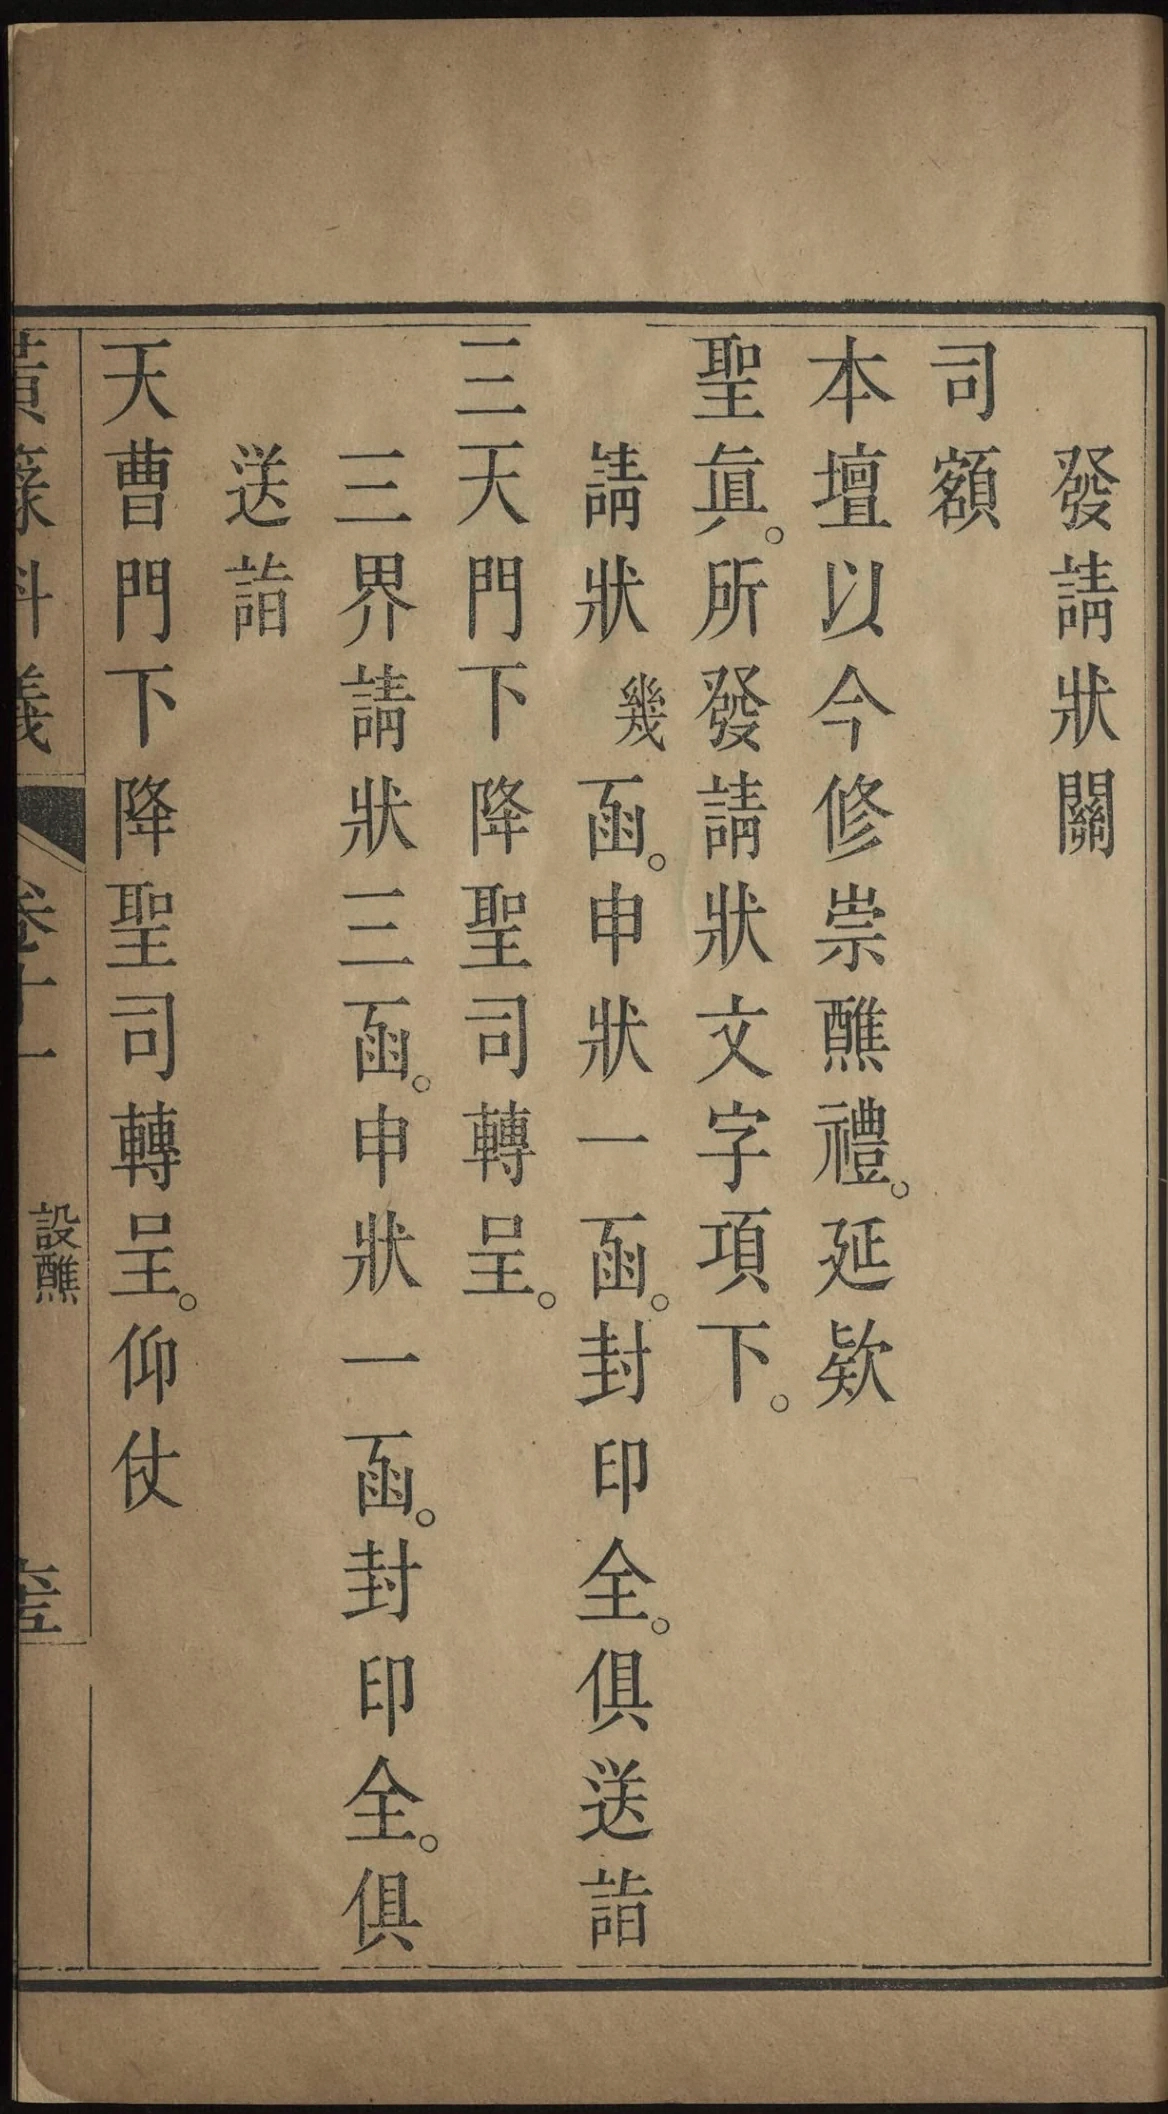 發請狀關
司額
本壇以今修崇醮禮。延欵
聖眞。所發請狀文字項下。
請狀幾函。申狀一函。封印全。俱送詣
三天門下降聖司轉呈。
三界請狀三函。申狀一函。封印全。俱
送詣
天曹門下降聖司轉呈。仰仗
黃籙科儀 卷十一 設醮